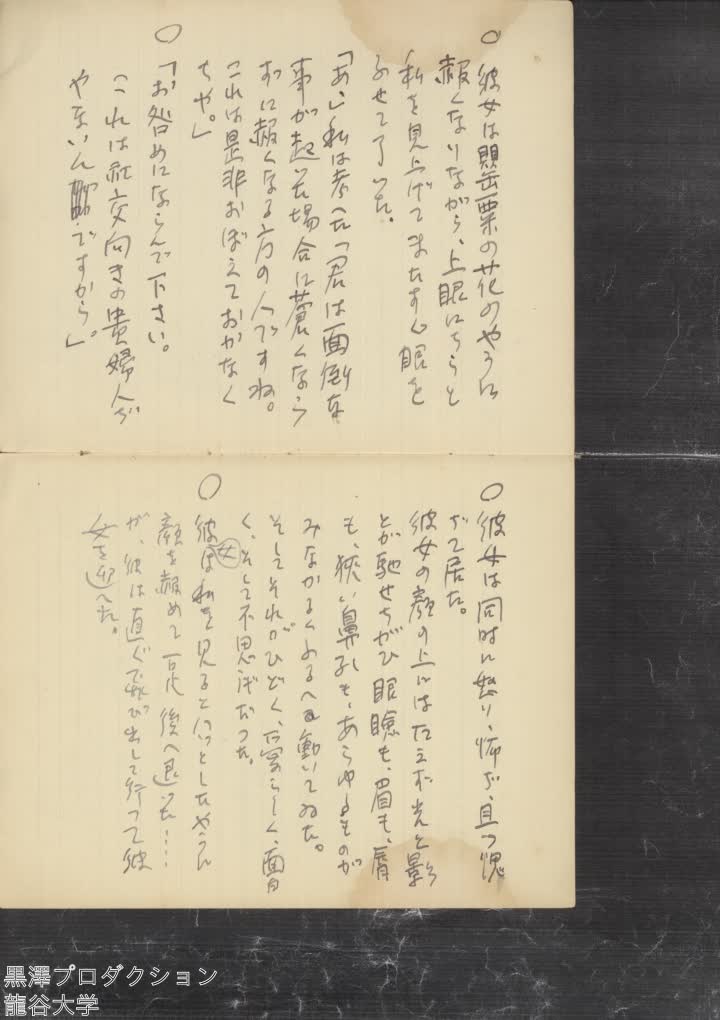 ○彼女は罌粟の花のやうに
赧くなりながら、上眼にちらと
私を見上げてまたすぐ眼を
ふせて了つた。
「あゝ私は考へた「君は面倒な
事が起つた場合に蒼くなら
ずに赧くなる方の人ですね。
これは是非おぼえておかなく
ちや。」
○「お咎めにならんで下さい。
これは社交向きの貴婦人が
やまいんですから」。
○彼女は同時に怒り、怖ぢ、且つ愧
ぢて居た。
彼女の顔の上にはたえず光と影
とが馳せちがひ 眼瞼も、眉も、唇
も、狭い鼻孔も、あらゆるものが
みなかるくふるへ動いてゐた。
そしてそれがひどく、可愛らしく、面白
く、そして不思議だつた。
○彼女は私を見るとハッとしたやうに
顔を赧めて一足後へ退つた……
が、彼は直ぐ飛び出して行つて彼
女を迎へた。
黒澤プロダクション
龍谷大学